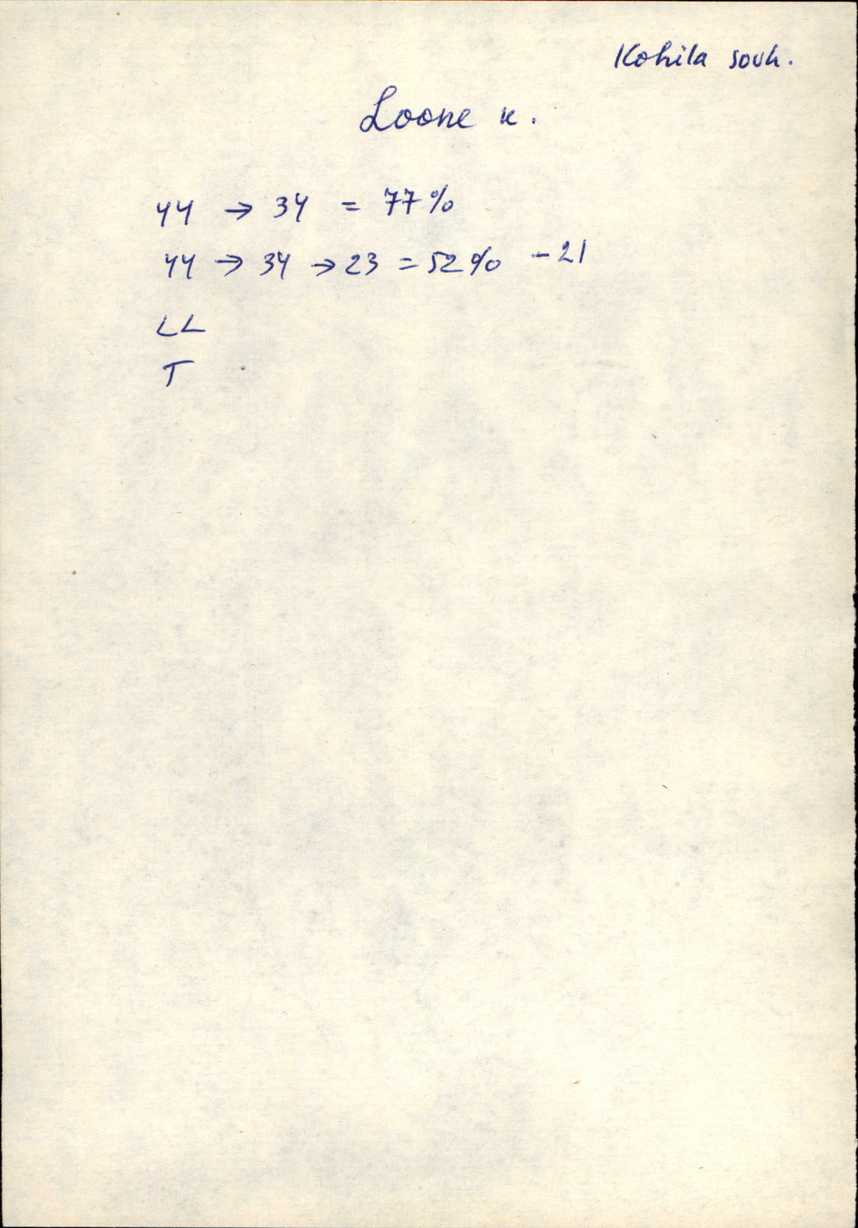 Kohila sovh.
Loone k.
44 → 34 = 77%
44 → 34 → 23 = 52% - 21
LL
T